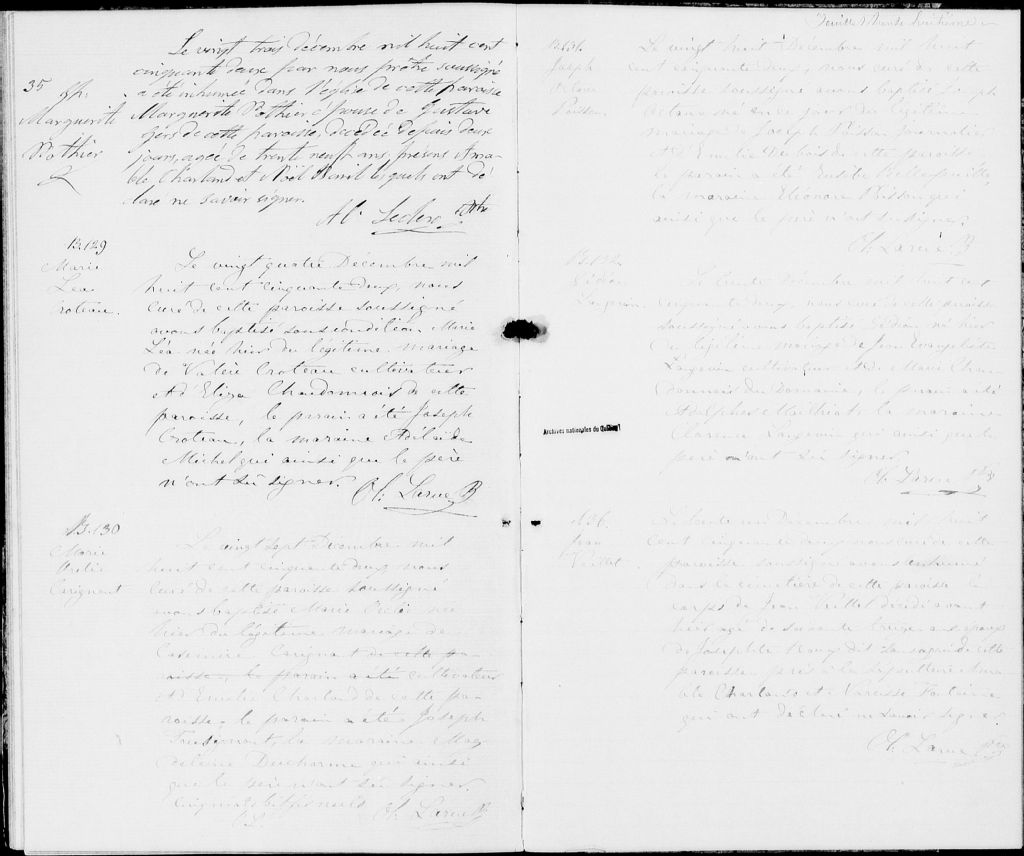 35 Sp.
Marguerite
Pothier
Le vingt trois décembre mil huit cent
cinquante deux par nous prêtre soussigné
a été inhumée dans l'église de cette paroisse
Marguerite Pothier épouse de Gustave
de cette paroisse, décédée depuis deux
jours, agée de trente neuf ans, présens Ama-
ble Charland et Noël lesquels ont dé-
claré ne savoir signer.
Leclerc Ptre
B.129
Marie
Léa
Croteau.
Le vingt quatre Décembre mil
huit cent cinquante deux, nous
curé de cette paroisse soussigné
avons baptisé sous condition Marie
Léa née hier du légitime mariage
de Valère Croteau cultivateur
et d'Eliza de cette
paroisse, le parain a été Joseph
Croteau, la maraine Adélaide
Michel qui ainsi que le père
n'ont su signer.
Ch. Larue P
B.130
Marie
Carignant
Le vingt sept Décembre mil
huit cent cinquante deux nous
curé de cette paroisse soussigné
avons baptisé Marie née
hier du légitime mariage de
Casimire Carignant de cette pa-
roisse, le parain a été cultivateur
et d'Emelie Charland de cette pa-
roisse, le parain a été Joseph
la maraine Mag-
deleine Ducharme qui ainsi
que le père n'ont su signer.
Ch. Larue P
feuille huitième
B.131.
Joseph
Octave
Poisson.
Le vingt huit Décembre mil huit
cent cinquante deux, nous curé de cette
paroisse soussigné avons baptisé Joseph
Octave né du légitime
mariage de Joseph Poisson journalier
et d'Emelie Dubois de cette paroisse
le parain a été Eusèbe Bellefeuille,
la maraine Eléonore Poisson qui
ainsi que le père n'ont su signer.
Ch. Larue P
B.132
Gédéon
Langevin.
Le trente Décembre mil huit cent
cinquante deux, nous curé de cette paroisse
soussigné avons baptisé Gédéon né hier
du légitime mariage de Jean Evangeliste
Langevin cultivateur et de Marie
le parain a été
Adolphe la maraine
Clarence Langevin qui ainsi que le
père n'ont su signer.
Ch. Larue Ptre
Archives nationales du Québec
S 36.
Jean
Le trente un Décembre mil huit
cent cinquante deux nous curé de cette
paroisse soussigné avons inhumé
dans le cimetière de cette paroisse le
corps de Jean décédé avant
hier agé de soixante treize ans époux
de Josephte dit de cette
paroisse. présens à la sépulture Ama-
ble Charland et Narcisse Fontaine
qui ont déclaré ne savoir signer
Ch. Larue Ptre